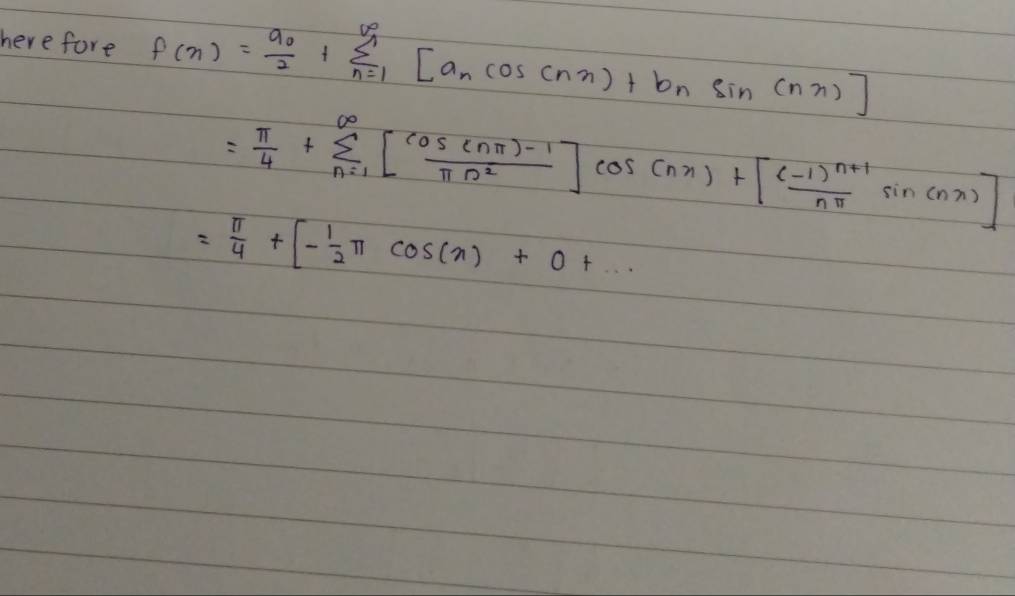 herefore f(x) = a₀/2 + ∞ Σ n=1 [aₙ cos (nx) + bₙ sin (nx)]
= π/4 + ∞ Σ n=1 [cos (nπ) - 1 / π n²] cos (nx) + [(-1)ⁿ⁺¹ / nπ sin (nx)]
= π/4 + [- 1/2 π cos(x) + 0 + ...